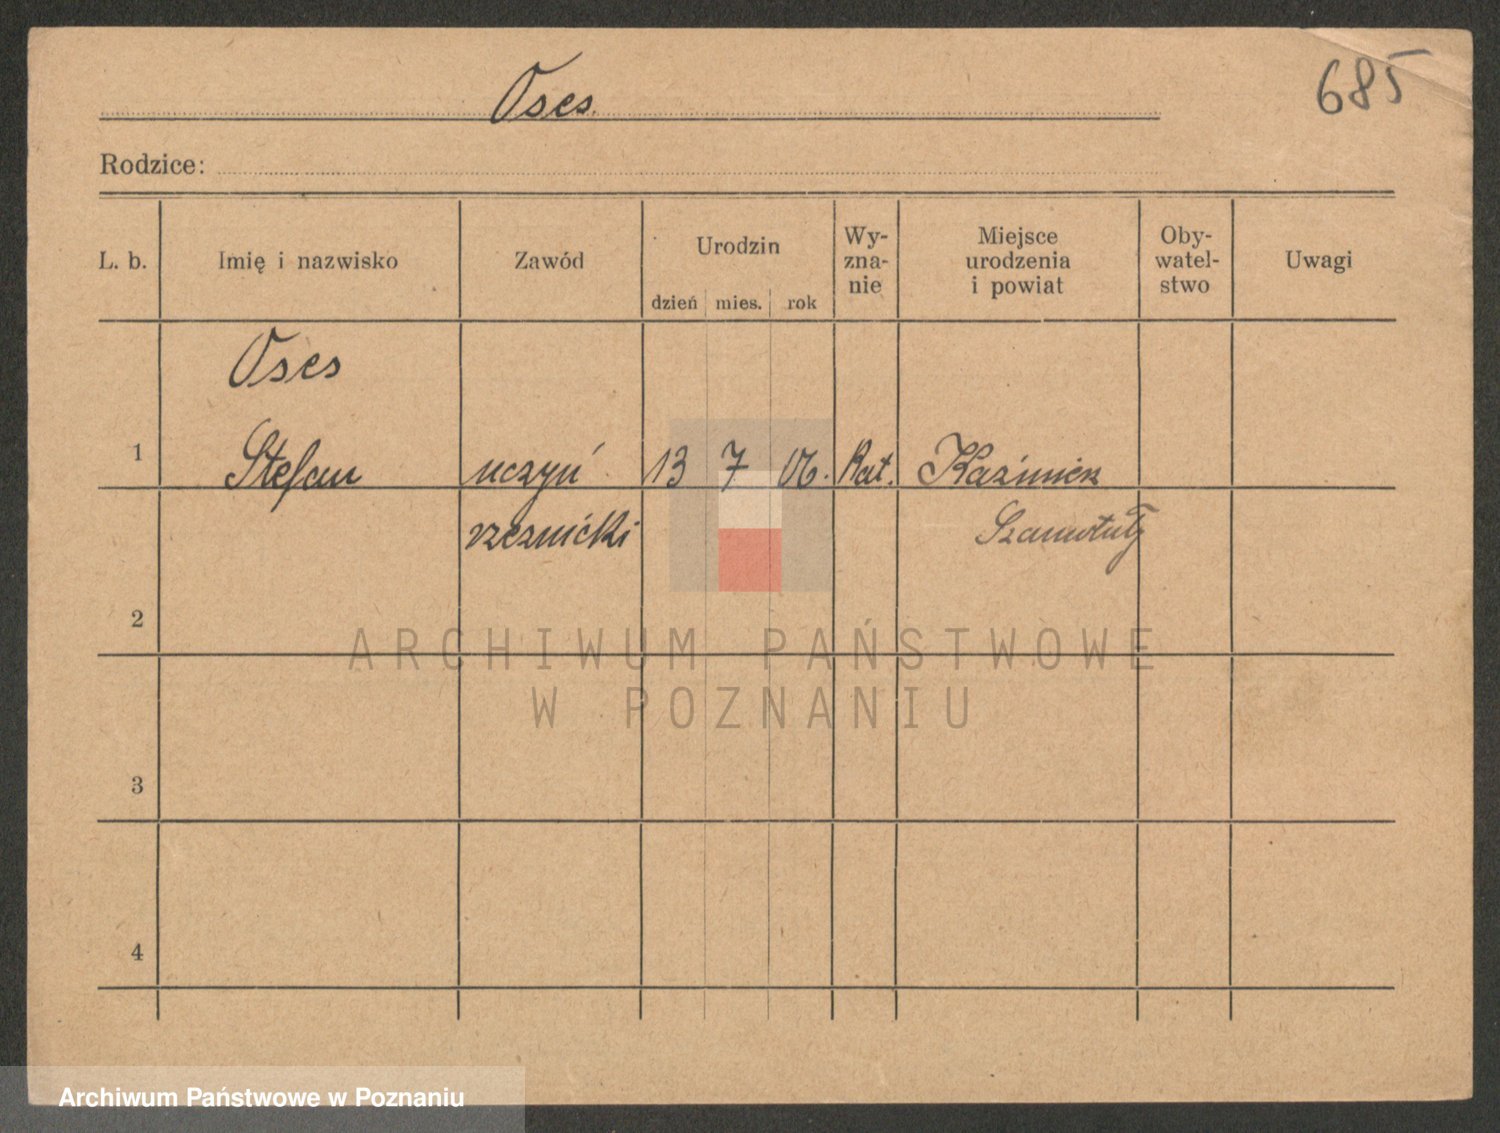 685
Oses
Rodzice:
L. b. Imię i nazwisko Zawód Urodzin dzień mies. rok Wy-zna-nie Miejsce urodzenia i powiat Oby-watel-stwo Uwagi
Oses
1 Stefan uczyń 13 7 06. Kat. Kaźmierz
rzeźnicki Szamotuły
2
ARCHIWUM PAŃSTWOWE
W POZNANIU
3
4
Archiwum Państwowe w Poznaniu